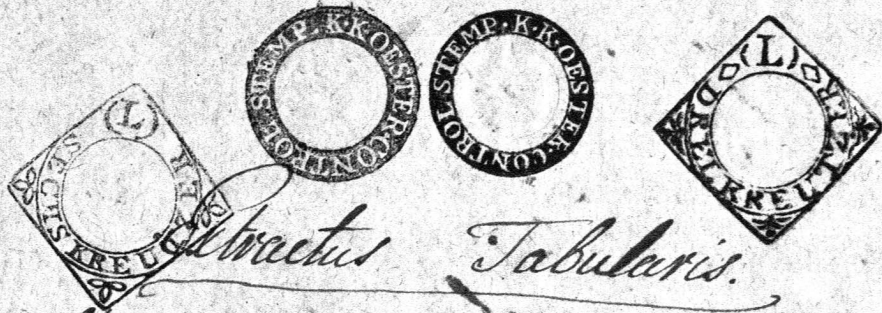 (L)
SECHS KREUTZER
K·K·OESTER·CONTROL·STEMP·
K·K·OESTER·CONTROL·STEMP·
(L)
DREY KREUTZER
Extractus Tabularis.